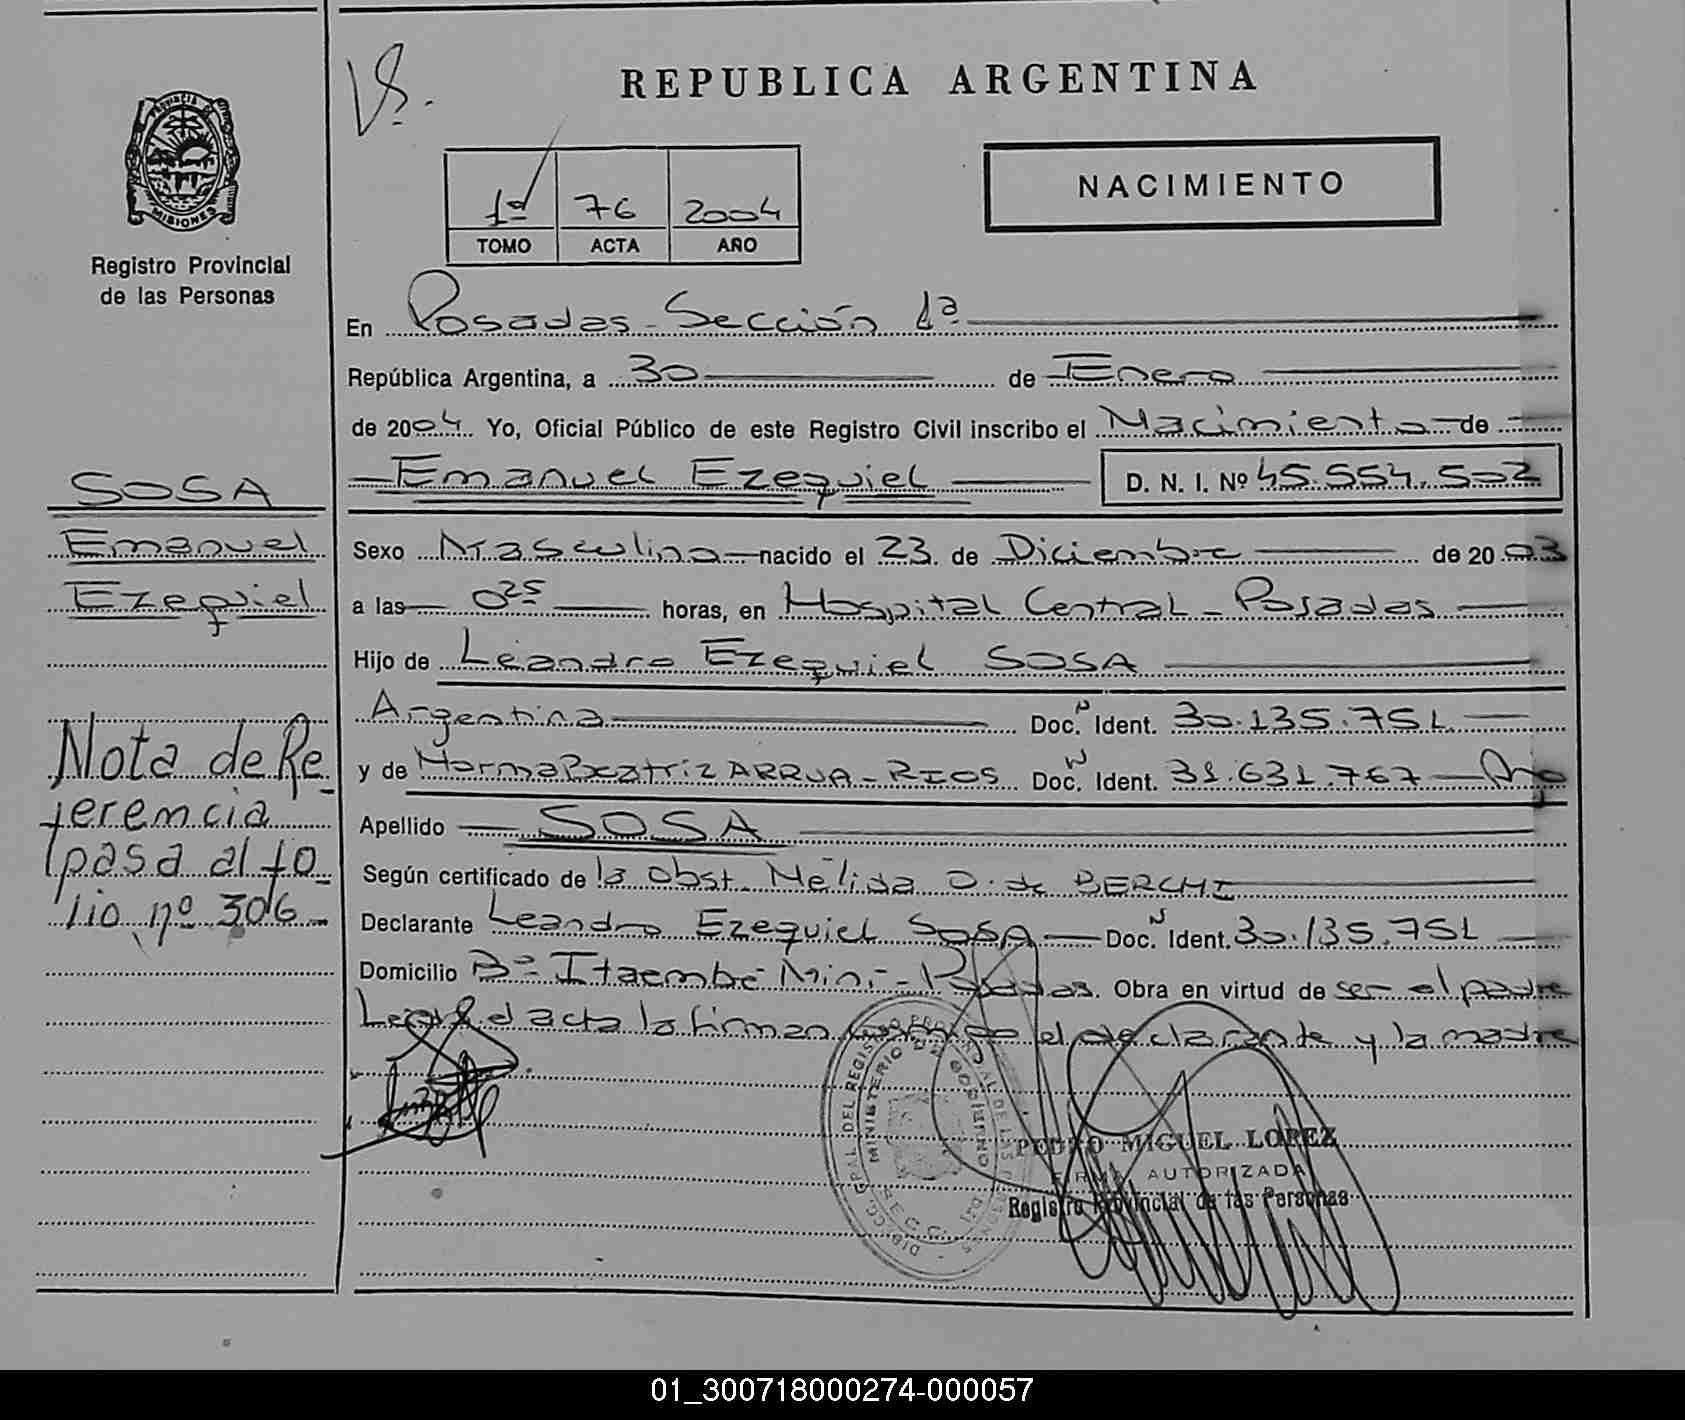 REPUBLICA ARGENTINA
1º 76 2004
TOMO ACTA AÑO
NACIMIENTO
PROVINCIA DE
MISIONES
Registro Provincial
de las Personas
En Posadas - Sección 1ª
República Argentina, a 30 de Enero
de 2004. Yo, Oficial Público de este Registro Civil inscribo el Nacimiento de
Emanuel Ezequiel D. N. I. Nº 45.554.502
Sexo Masculino nacido el 23 de Diciembre de 2003
a las 0 25 horas, en Hospital Central - Posadas
Hijo de Leandro Ezequiel SOSA
Argentina Doc. N Ident. 30.135.751
y de Norma Beatriz ARRUA - RIOS Doc. N Ident. 31.631.767
Apellido SOSA
Según certificado de la Obst. Nélida O. de BERCHI
Declarante Leandro Ezequiel SOSA Doc. N Ident. 30.135.751
Domicilio Bº Itaembé Miní - Posadas. Obra en virtud de ser el padre
Leída el acta la firman conmigo el declarante y la madre
SOSA
Emanuel
Ezequiel
Nota de Re-
ferencia
pasa al fo-
lio nº 306
PEDRO MIGUEL LOPEZ
FIRMA AUTORIZADA
Registro Provincial de las Personas
MINISTERIO DE GOBIERNO
01_300718000274-000057